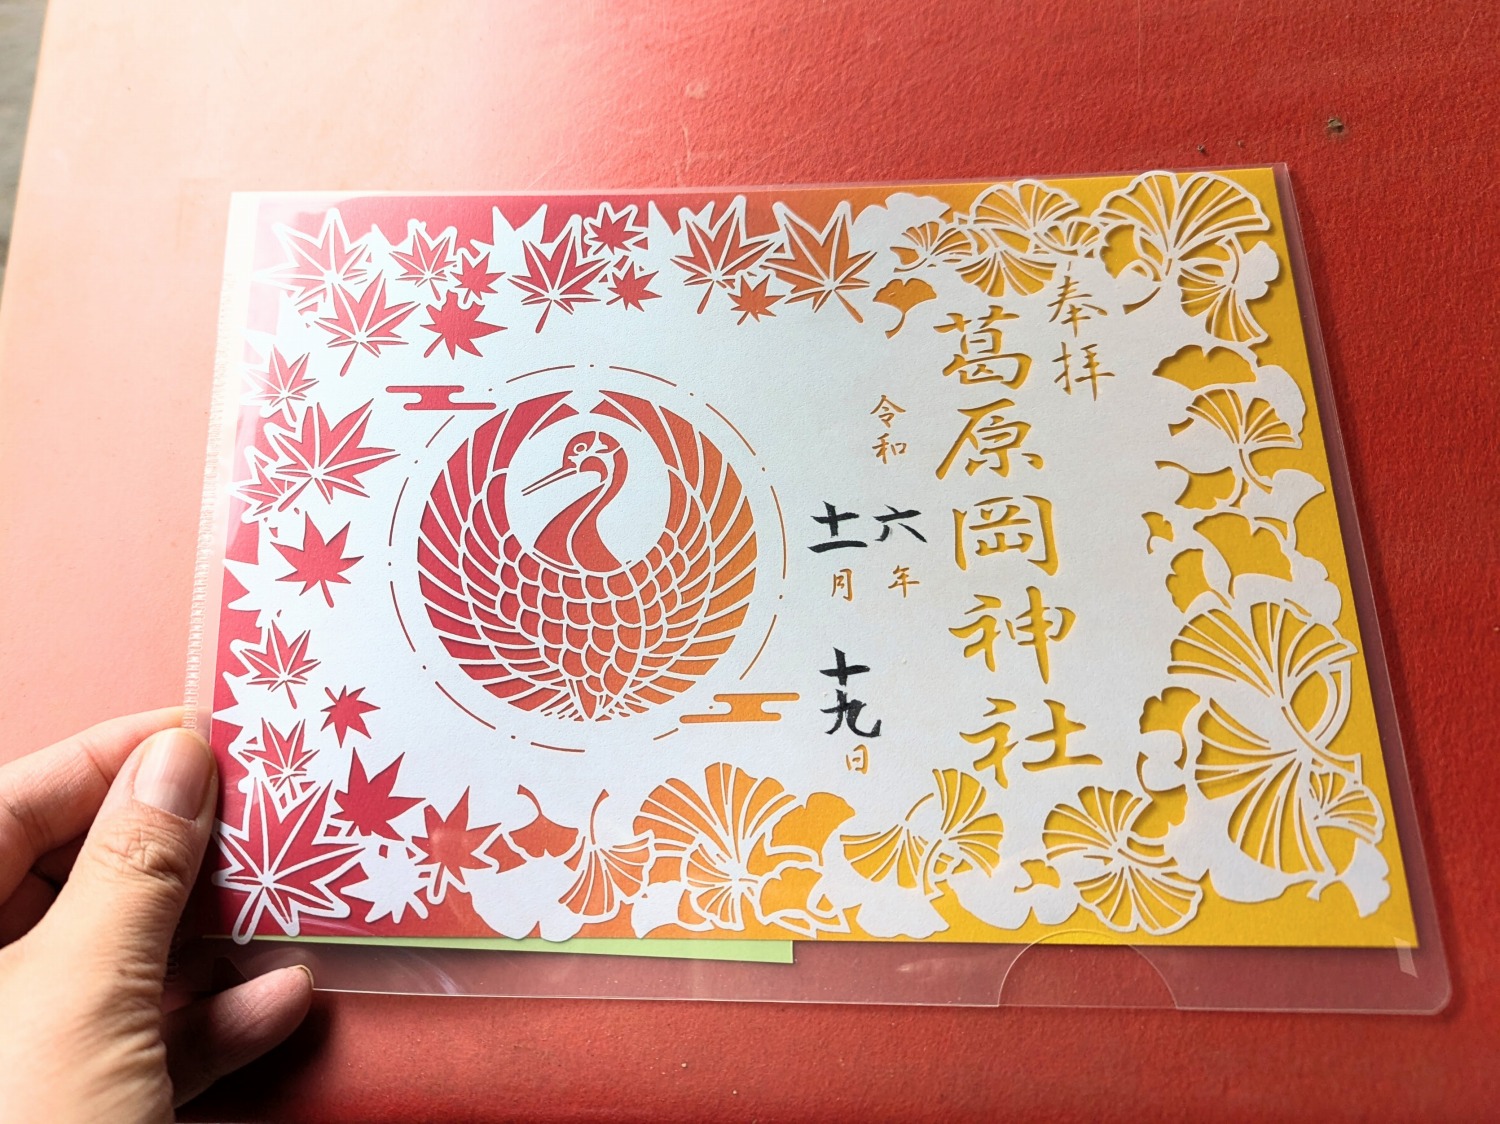 奉拝
葛原岡神社
令和六年
十一月十九日